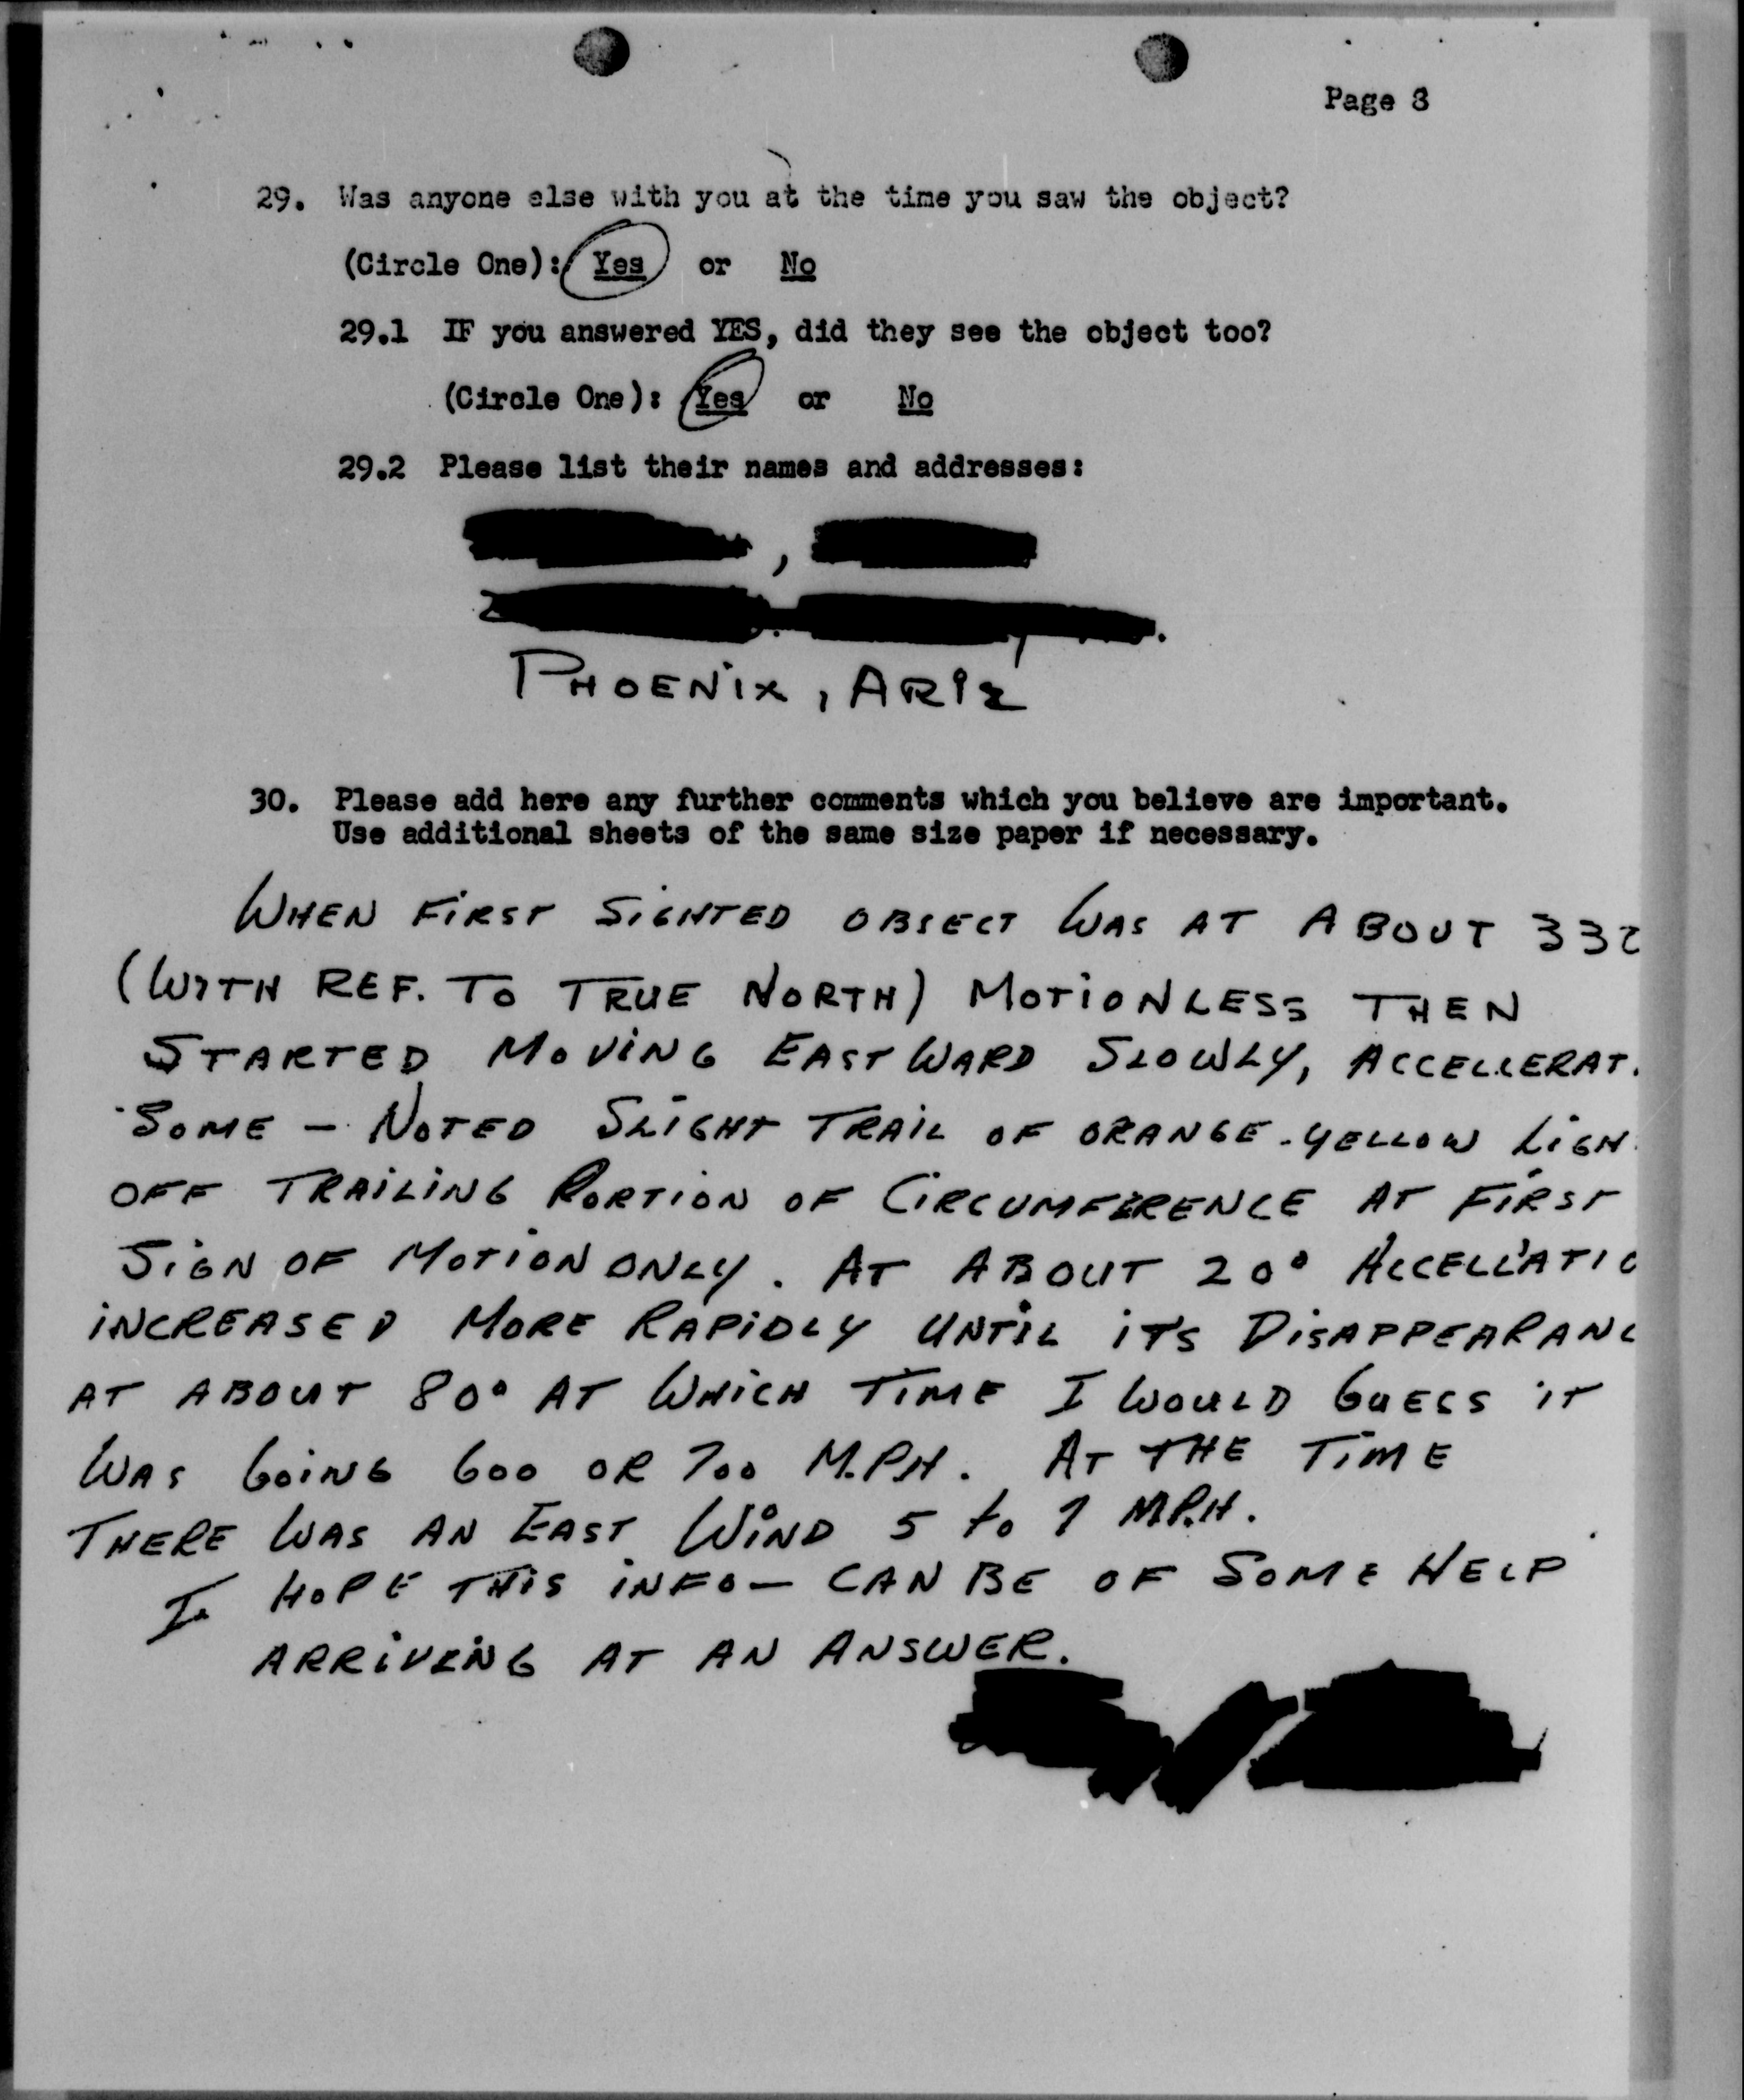 Page 8
29. Was anyone else with you at the time you saw the object?
(Circle One): Yes or No
29.1 IF you answered YES, did they see the object too?
(Circle One): Yes or No
29.2 Please list their names and addresses:
PHOENIX, ARIZ
30. Please add here any further comments which you believe are important.
Use additional sheets of the same size paper if necessary.
WHEN FIRST SIGHTED OBJECT WAS AT ABOUT
(WITH REF. TO TRUE NORTH) MOTIONLESS THEN
STARTED MOVING EASTWARD SLOWLY, ACCELLERAT.
SOME - NOTED SLIGHT TRAIL OF ORANGE-YELLOW LIGH
OFF TRAILING PORTION OF CIRCUMFERENCE AT FIRST
SIGN OF MOTION ONLY. AT ABOUT 20° ACCELL'ATIO
INCREASED MORE RAPIDLY UNTIL IT'S DISAPPEARANC
AT ABOUT 80° AT WHICH TIME I WOULD GUESS IT
WAS GOING 600 OR 700 M.P.H. AT THE TIME
THERE WAS AN EAST WIND 5 to 7 M.P.H.
I HOPE THIS INFO- CAN BE OF SOME HELP
ARRIVING AT AN ANSWER.